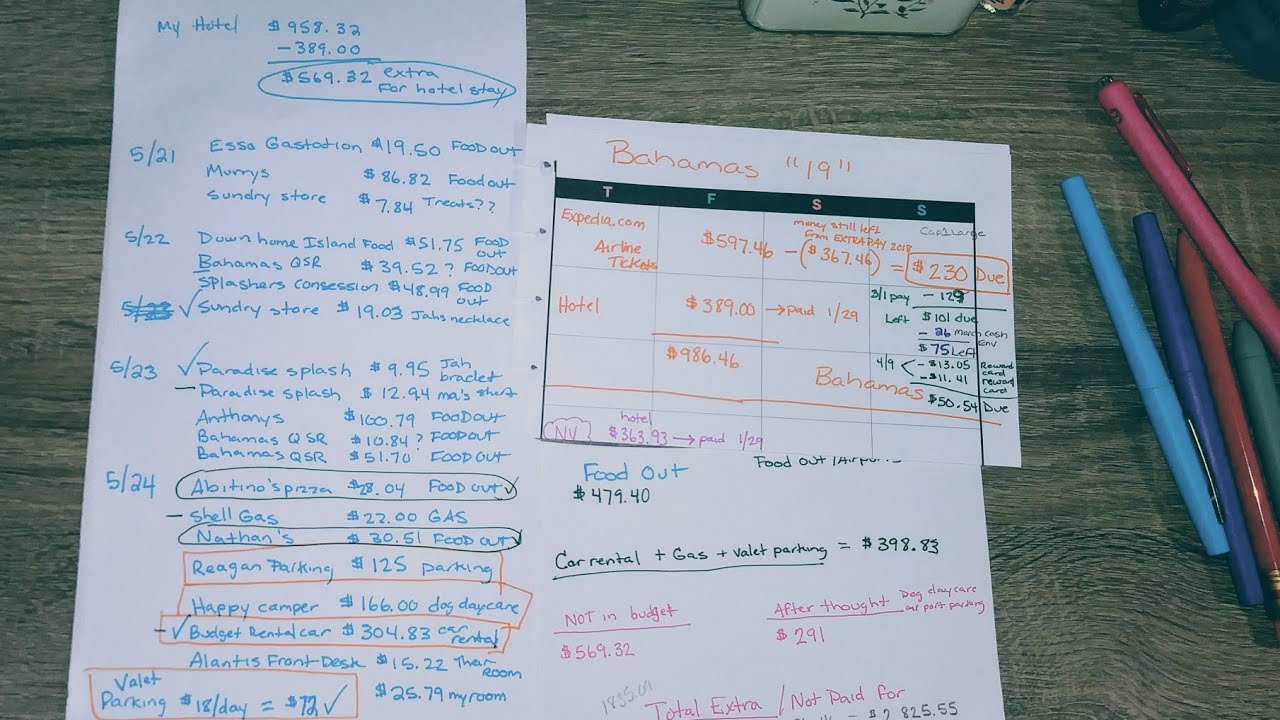 My Hotel $958.32
-389.00
$569.32 extra
For hotel stay
5/21 Esso Gastation $19.50 FOOD OUT
Murrys $86.82 Food out
Sundry store $7.84 Treats??
5/22 Down home Island Food $51.75 FOOD out
Bahamas QSR $39.52 ? FOOD OUT
Splashers consession $48.99 FOOD out
✓ Sundry store $19.03 Jahs necklace
5/23 ✓ Paradise splash $9.95 Jah braclet
- Paradise splash $12.94 ma's short
Anthonys $100.79 FOOD OUT
Bahamas QSR $10.84 ? FOOD OUT
Bahamas QSR $51.70 FOOD OUT
5/24 Abitino's pizza $28.04 FOOD OUT ✓
- Shell Gas $22.00 GAS
Nathan's $30.51 FOOD OUT ✓
Reagan Parking $125 parking
Happy camper $166.00 dog daycare
- ✓ Budget Rental car $304.83 car rental
Alantis Front Desk $15.22 Thar Room
$25.79 my room
Valet
Parking $18/day = $72 ✓
Bahamas "19"
T F S S
Expedia.com
Airline
Tickets
$597.46 - ($367.46) = $230 Due
money still left
from EXTRA PAY 2018
3/1 pay - 129
Hotel $389.00 → paid 1/29
Left $101 due
- 26 march cash env
$75 Left
$986.46
4/9 - $13.05 Reward card
- $11.41 reward card
Bahamas $50.54 Due
hotel
NV $363.93 → paid 1/29
Food Out
$479.40
Car rental + Gas + valet parking = $398.83
NOT in budget
$569.32
After thought Dog daycare
air port parking
$291
1835.09
Total Extra / Not Paid for